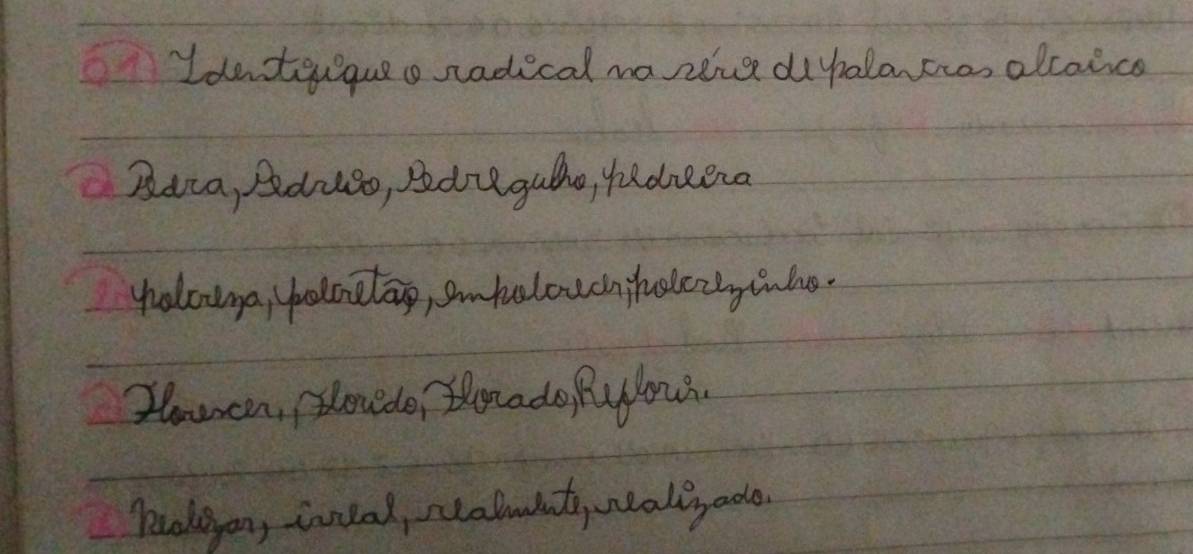 01) Identifique o radical na série de palavras abaixo
a Pedra, Pedreiro, Pedregulho, pedreira
pobreza, pobretão, empobrecer, pobrezinho.
Florescer, Florido, Florado, Reflorir.
Realizar, irreal, realmente, realizado.